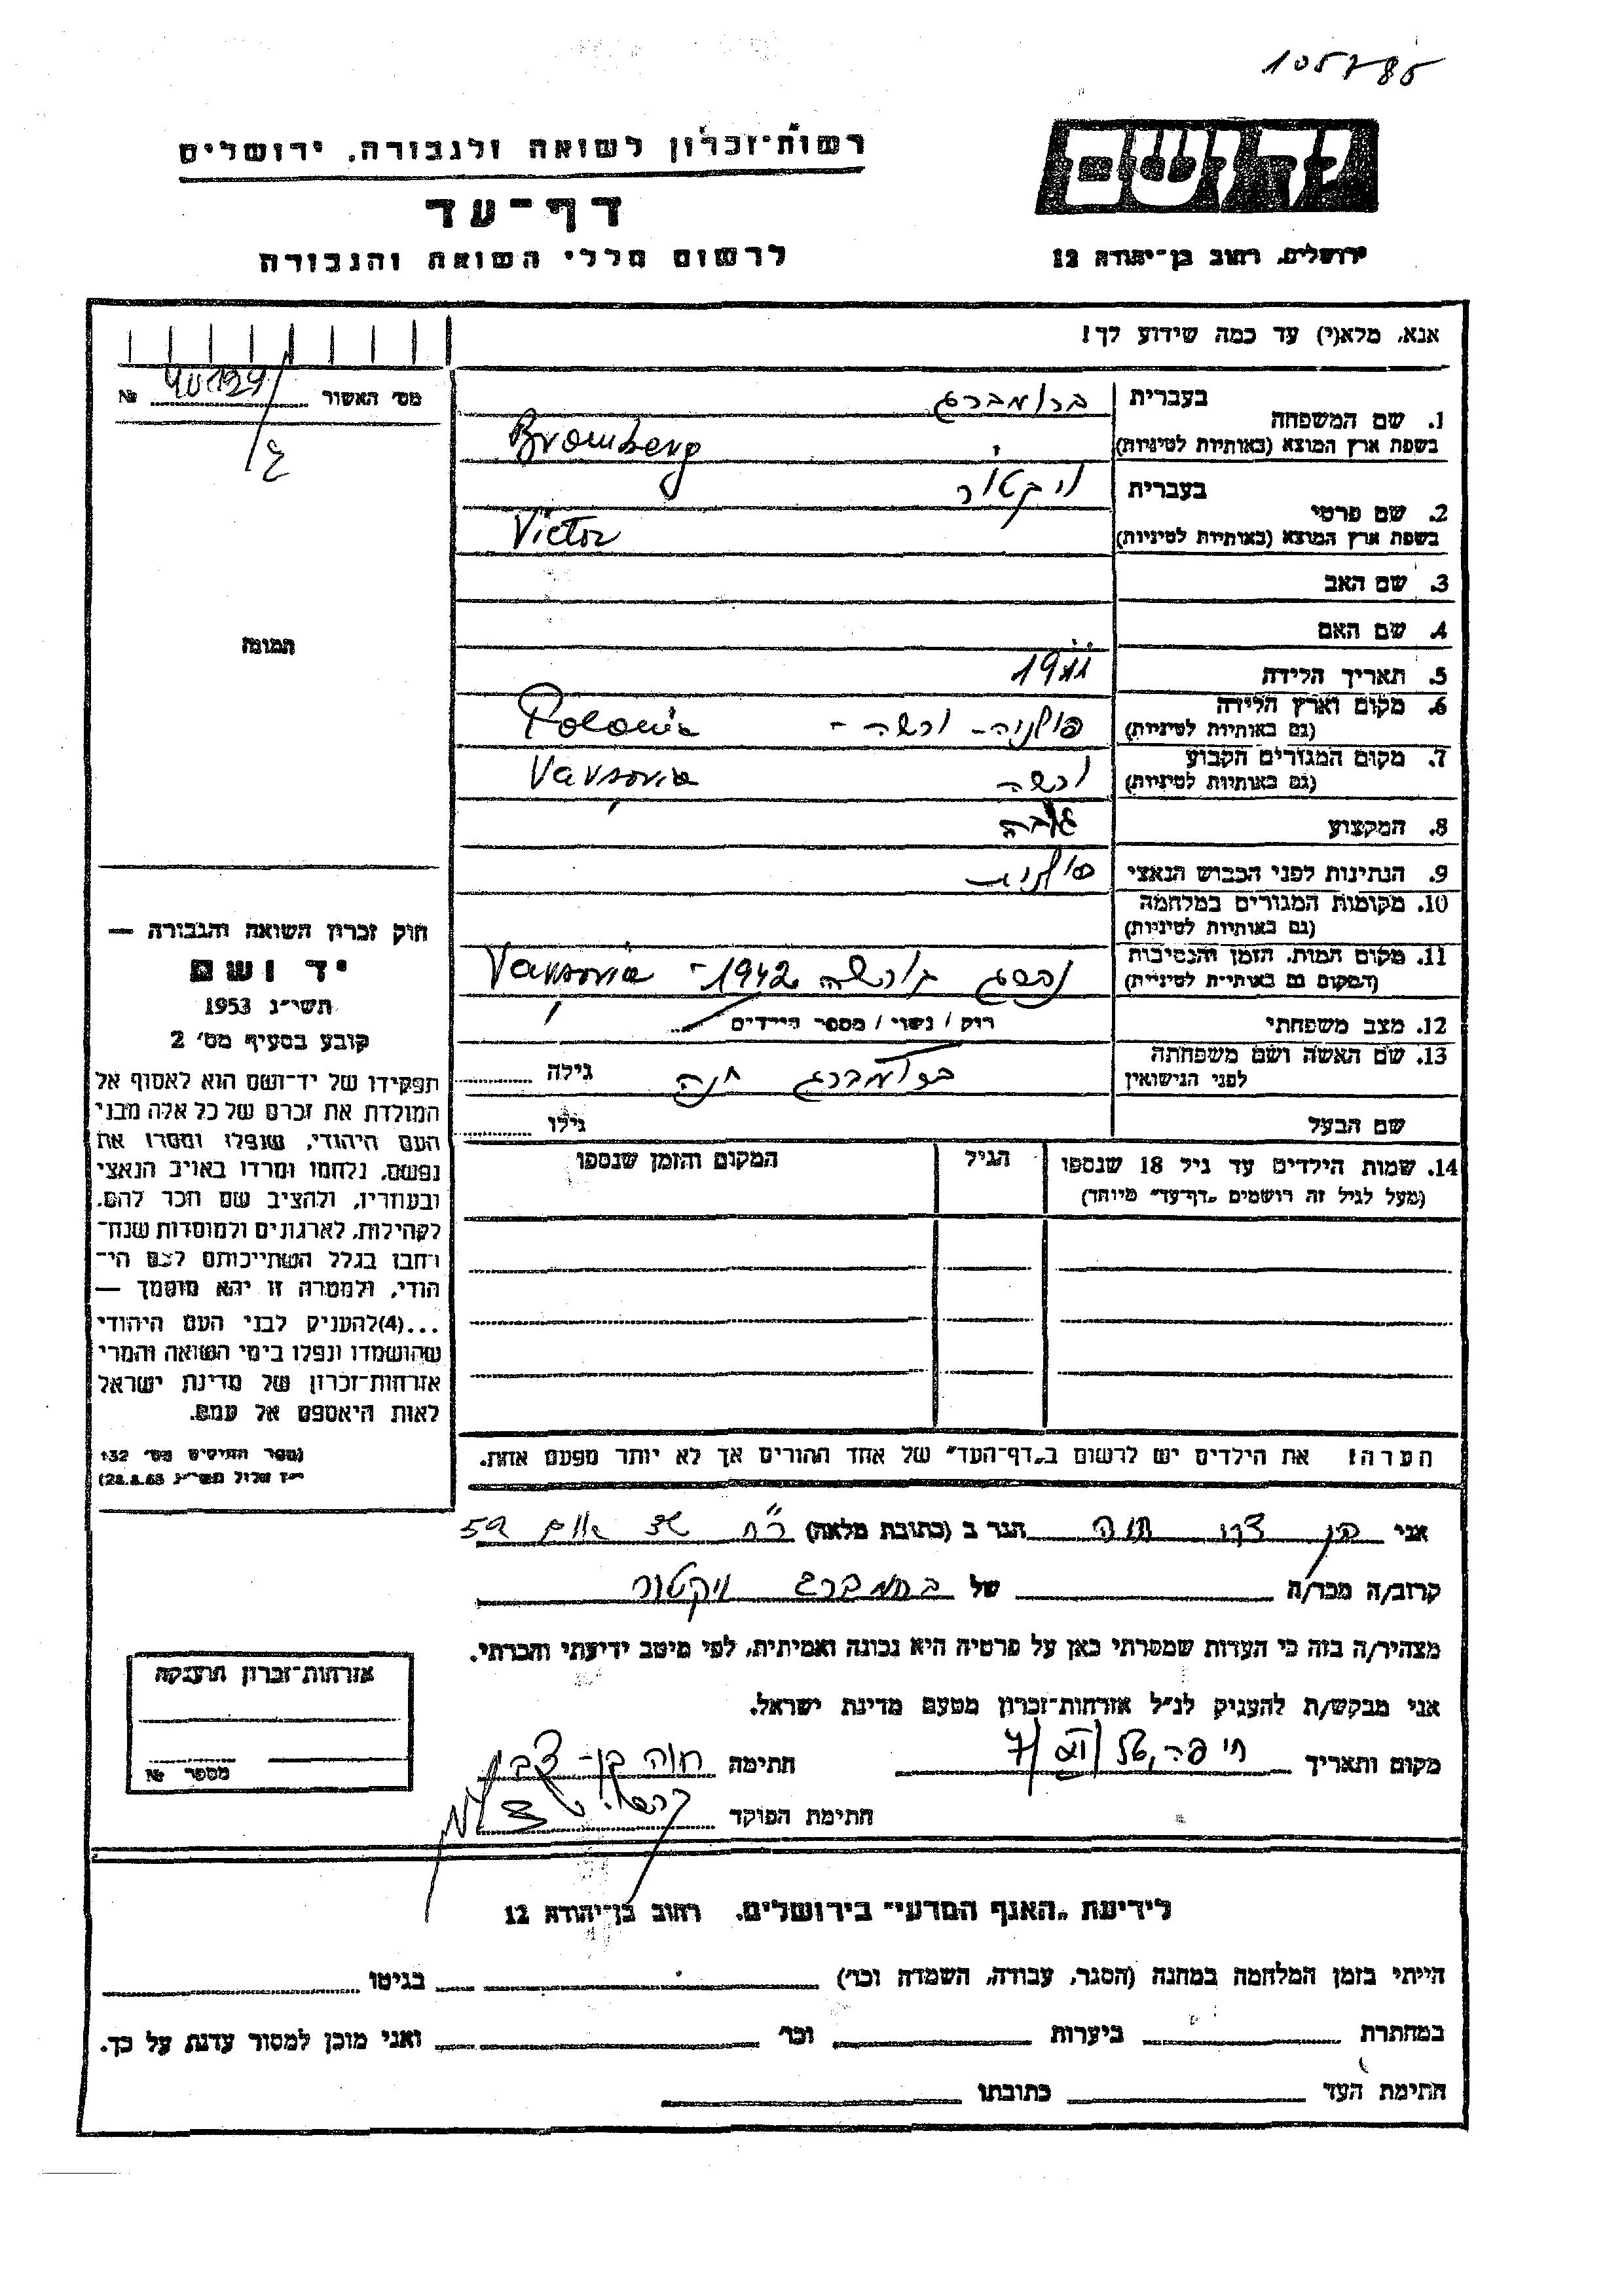 105785
רשות־זכרון לשואה ולגבורה, ירושלים
דף־עד
לרשום חללי השואה והגבורה
יד ושם
ירושלים, רחוב בן־יהודה 12
אנא, מלא(י) עד כמה שידוע לך!
מס׳ האשור № 40129
1. שם המשפחה
בעברית ברומברג
בשפת ארץ המוצא (באותיות לטיניות) Bromberg
2. שם פרטי
בעברית ויקטור
בשפת ארץ המוצא (באותיות לטיניות) Victor
3. שם האב
4. שם האם
5. תאריך הלידה 1911
6. מקום וארץ הלידה
(גם באותיות לטיניות) פולניה - ורשה - Polonia
7. מקום המגורים הקבוע
(גם באותיות לטיניות) ורשה Varsovia
8. המקצוע גובה
9. הנתינות לפני הכבוש הנאצי פולנית
10. מקומות המגורים במלחמה
(גם באותיות לטיניות)
11. מקום המות, הזמן והנסיבות
(המקום גם באותיות לטיניות) נהרג בורשה 1942 - Varsovia
12. מצב משפחתי רוק / נשוי / מספר הילדים
13. שם האשה ושם משפחתה
לפני הנישואין ברומברג חנה גילה
שם הבעל גילו
14. שמות הילדים עד גיל 18 שנספו
(מעל לגיל זה רושמים „דף־עד״ מיוחד)
הגיל
המקום והזמן שנספו
הערה! את הילדים יש לרשום ב„דף־העד״ של אחד ההורים אך לא יותר מפעם אחת.
תמונה
חוק זכרון השואה והגבורה —
יד ושם
תשי״ג 1953
קובע בסעיף מס׳ 2
תפקידו של יד־ושם הוא לאסוף אל
המולדת את זכרם של כל אלה מבני
העם היהודי, שנפלו ומסרו את
נפשם, נלחמו ומרדו באויב הנאצי
ובעוזריו, ולהציב שם וזכר להם,
לקהילות, לארגונים ולמוסדות שנח־
רבו בגלל השתייכותם לעם הי־
הודי, ולמטרה זו יהא מוסמך —
...(4)להעניק לבני העם היהודי
שהושמדו ונפלו בימי השואה והמרי
אזרחות־זכרון של מדינת ישראל
לאות היאספם אל עמם.
(ספר החוקים מס׳ 132
י״ז אלול תשי״ג 28.8.53)
אני בן צבי חוה הגר ב (כתובת מלאה) 59
קרוב/ה מכר/ה של ברומברג ויקטור
מצהיר/ה בזה כי העדות שמסרתי כאן על פרטיה היא נכונה ואמיתית, לפי מיטב ידיעתי והכרתי.
אני מבקש/ת להעניק לנ״ל אזרחות־זכרון מטעם מדינת ישראל.
מקום ותאריך חיפה, חתימה חוה בן - צבי
חתימת הפוקד
אזרחות־זכרון הוענקה
מספר №
לידיעת „האגף המדעי״ בירושלים, רחוב בן־יהודה 12
הייתי בזמן המלחמה במחנה (הסגר, עבודה, השמדה וכו׳) בגיטו
במחתרת ביערות וכו׳ ואני מוכן למסור עדות על כך.
חתימת העד כתובתו